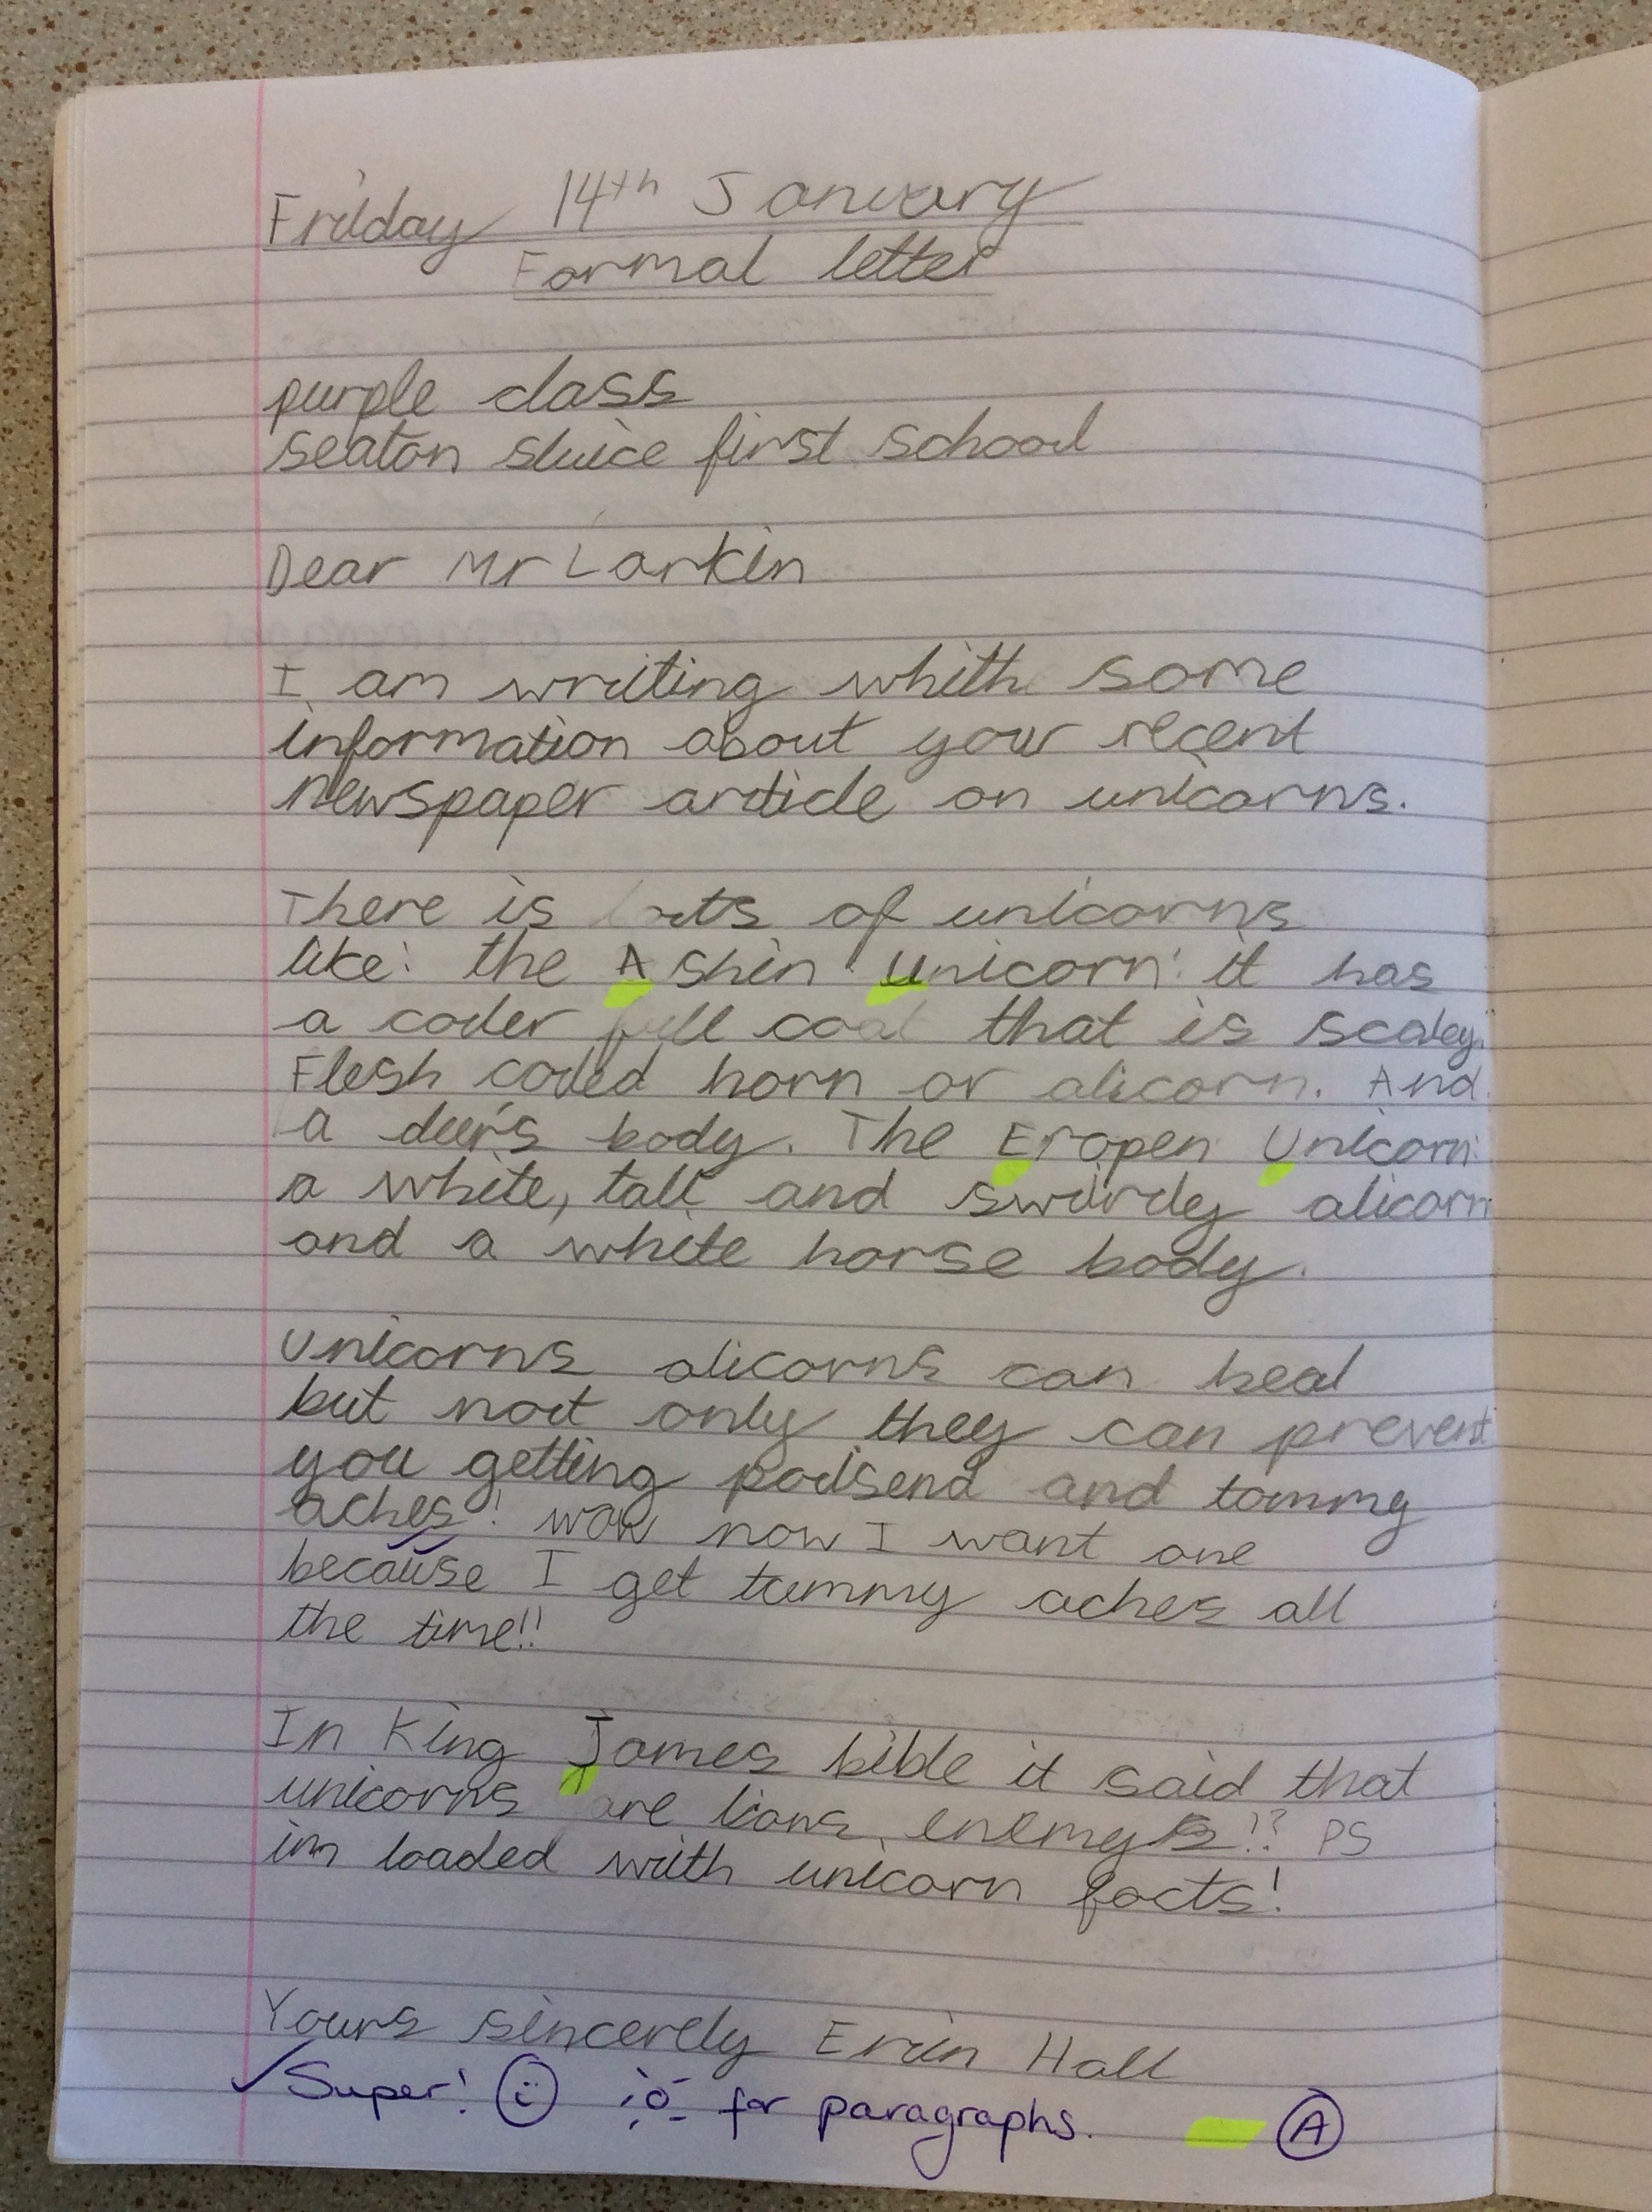 Friday 14th January
Formal letter
purple class
seaton sluice first school
Dear Mr Larkin
I am writing whith some
information about your recent
newspaper article on unicorns.
There is lots of unicorns
like: the Ashin Unicorn: it has
a coler full coat that is scaley.
Flesh coled horn or alicorn. And
a deer's body. The Eropen Unicorn:
a white, tall and swirdey alicorn
and a white horse body.
Unicorns alicorns can heal
but not only they can prevent
you getting poisend and tommy
aches! wow now I want one
because I get tummy aches all
the time!!
In King James bible it said that
unicorns are lions enemys!? PS
im loaded with unicorn facts!
Yours sincerely Erin Hall
Super! for paragraphs. A